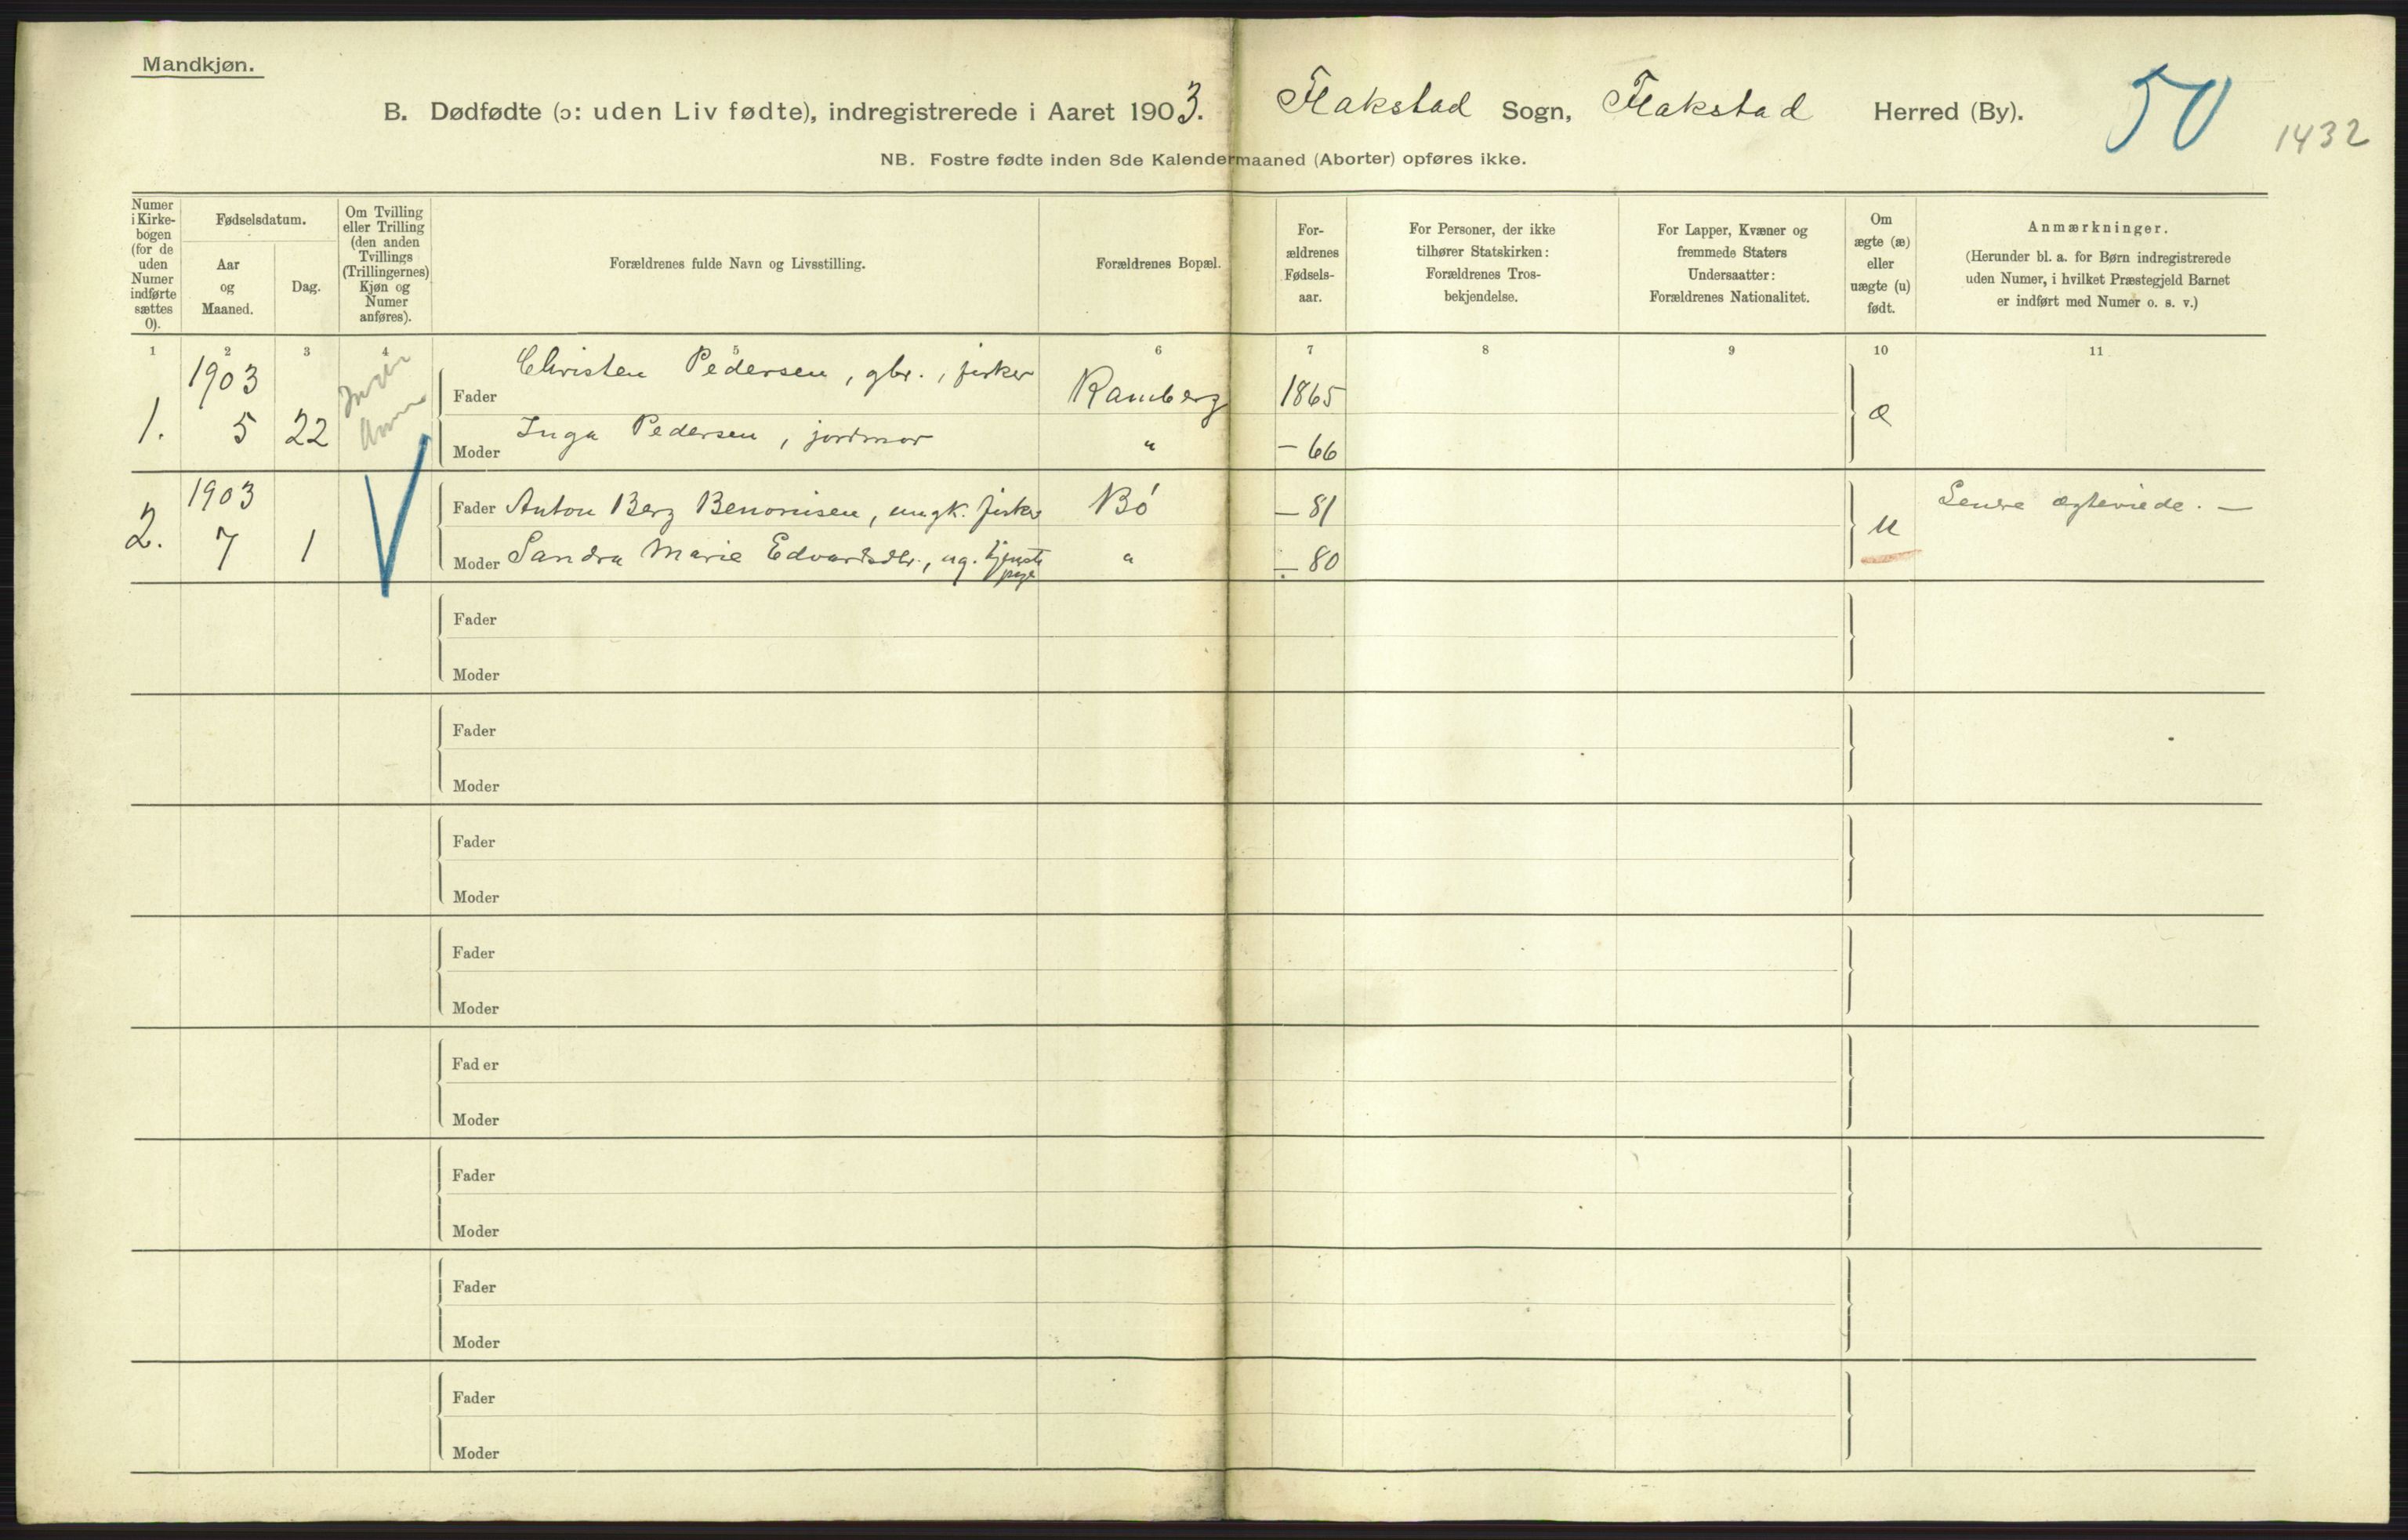 Mandkjøn.
B. Dødfødte (ɔ: uden Liv fødte), indregistrerede i Aaret 1903. Flakstad Sogn, Flakstad Herred (By).
50
1432
NB. Fostre fødte inden 8de Kalendermaaned (Aborter) opføres ikke.
Numer
i Kirke-
bogen
(for de
uden
Numer
indførte
sættes
0).
Fødselsdatum.
Aar
og
Maaned.
Dag.
Om Tvilling
eller Trilling
(den anden
Tvillings
(Trillingernes)
Kjøn og
Numer
anføres).
Forældrenes fulde Navn og Livsstilling.
Forældrenes Bopæl.
For-
ældrenes
Fødsels-
aar.
For Personer, der ikke
tilhører Statskirken:
Forældrenes Tros-
bekjendelse.
For Lapper, Kvæner og
fremmede Staters
Undersaatter:
Forældrenes Nationalitet.
Om
ægte (æ)
eller
uægte (u)
født.
Anmærkninger.
(Herunder bl. a. for Børn indregistrerede
uden Numer, i hvilket Præstegjeld Barnet
er indført med Numer o. s. v.)
1 2 3 4 5 6 7 8 9 10 11
1903
1. 5 22
Fader Christen Pedersen, gbr., fisker Ramberg 1865
æ
Moder Inga Pedersen, jordmor " - 66
1903
2. 7 1
Fader Anton Berg Benonisen, ungk. fisker Bö - 81
u
Senere ægteviede. -
Moder Sandra Marie Edvardsdtr., ug. tjeneste " - 80
pige
Fader
Moder
Fader
Moder
Fader
Moder
Fader
Moder
Fader
Moder
Fader
Moder
Fader
Moder
Fader
Moder